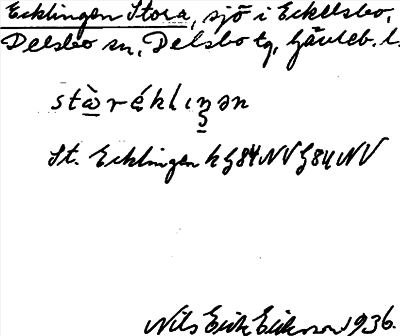 Ecklingen Stora, sjö i Eckelsbo,
Delsbo sn, Delsbo tg, Gävleb. l.
stὰräklıŋən
St. Ecklingen k G84NV G84NV
Nils Erik Eriksson 1936.